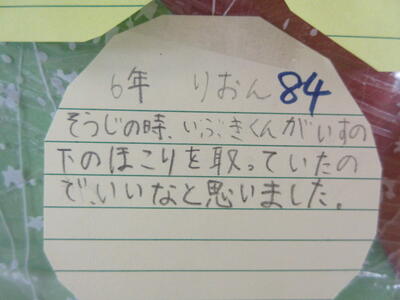 6年 りおん 84
そうじの時、いぶきくんがいすの
下のほこりを取っていたの
で、いいなと思いました。